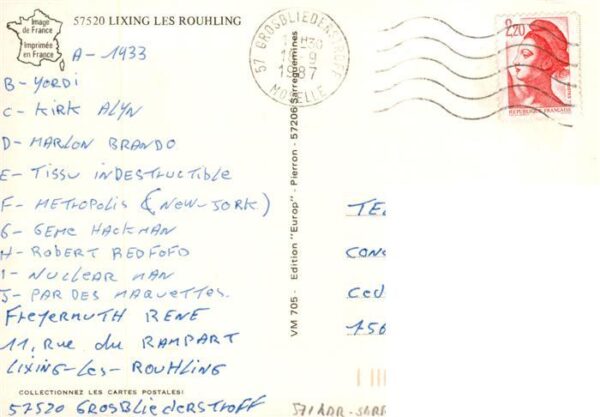 Image
de France
Imprimée
en France
57520 LIXING LES ROUHLING
57 GROSBLIEDERSTROFF
1987
MOSELLE
2,20
REPUBLIQUE FRANÇAISE
A - 1933
B - YORDI
C - KIRK ALYN
D - MARLON BRANDO
E - TISSU INDESTRUCTIBLE
F - METROPOLIS (NEW-JORK)
G - GEME HACKMAN
H - ROBERT REDFOFO
I - NUCLEAR MAN
J - PAR DES MAQUETTES.
FREYERMUTH RENE
11, Rue du RAMPART
LIXING-Les-ROUHLING
COLLECTIONNEZ LES CARTES POSTALES!
57520 GROSBLIEDERSTROFF
VM 705 - Edition "Europ" - Pierron - 57206 Sarreguemines
TE
CON
Ced
750